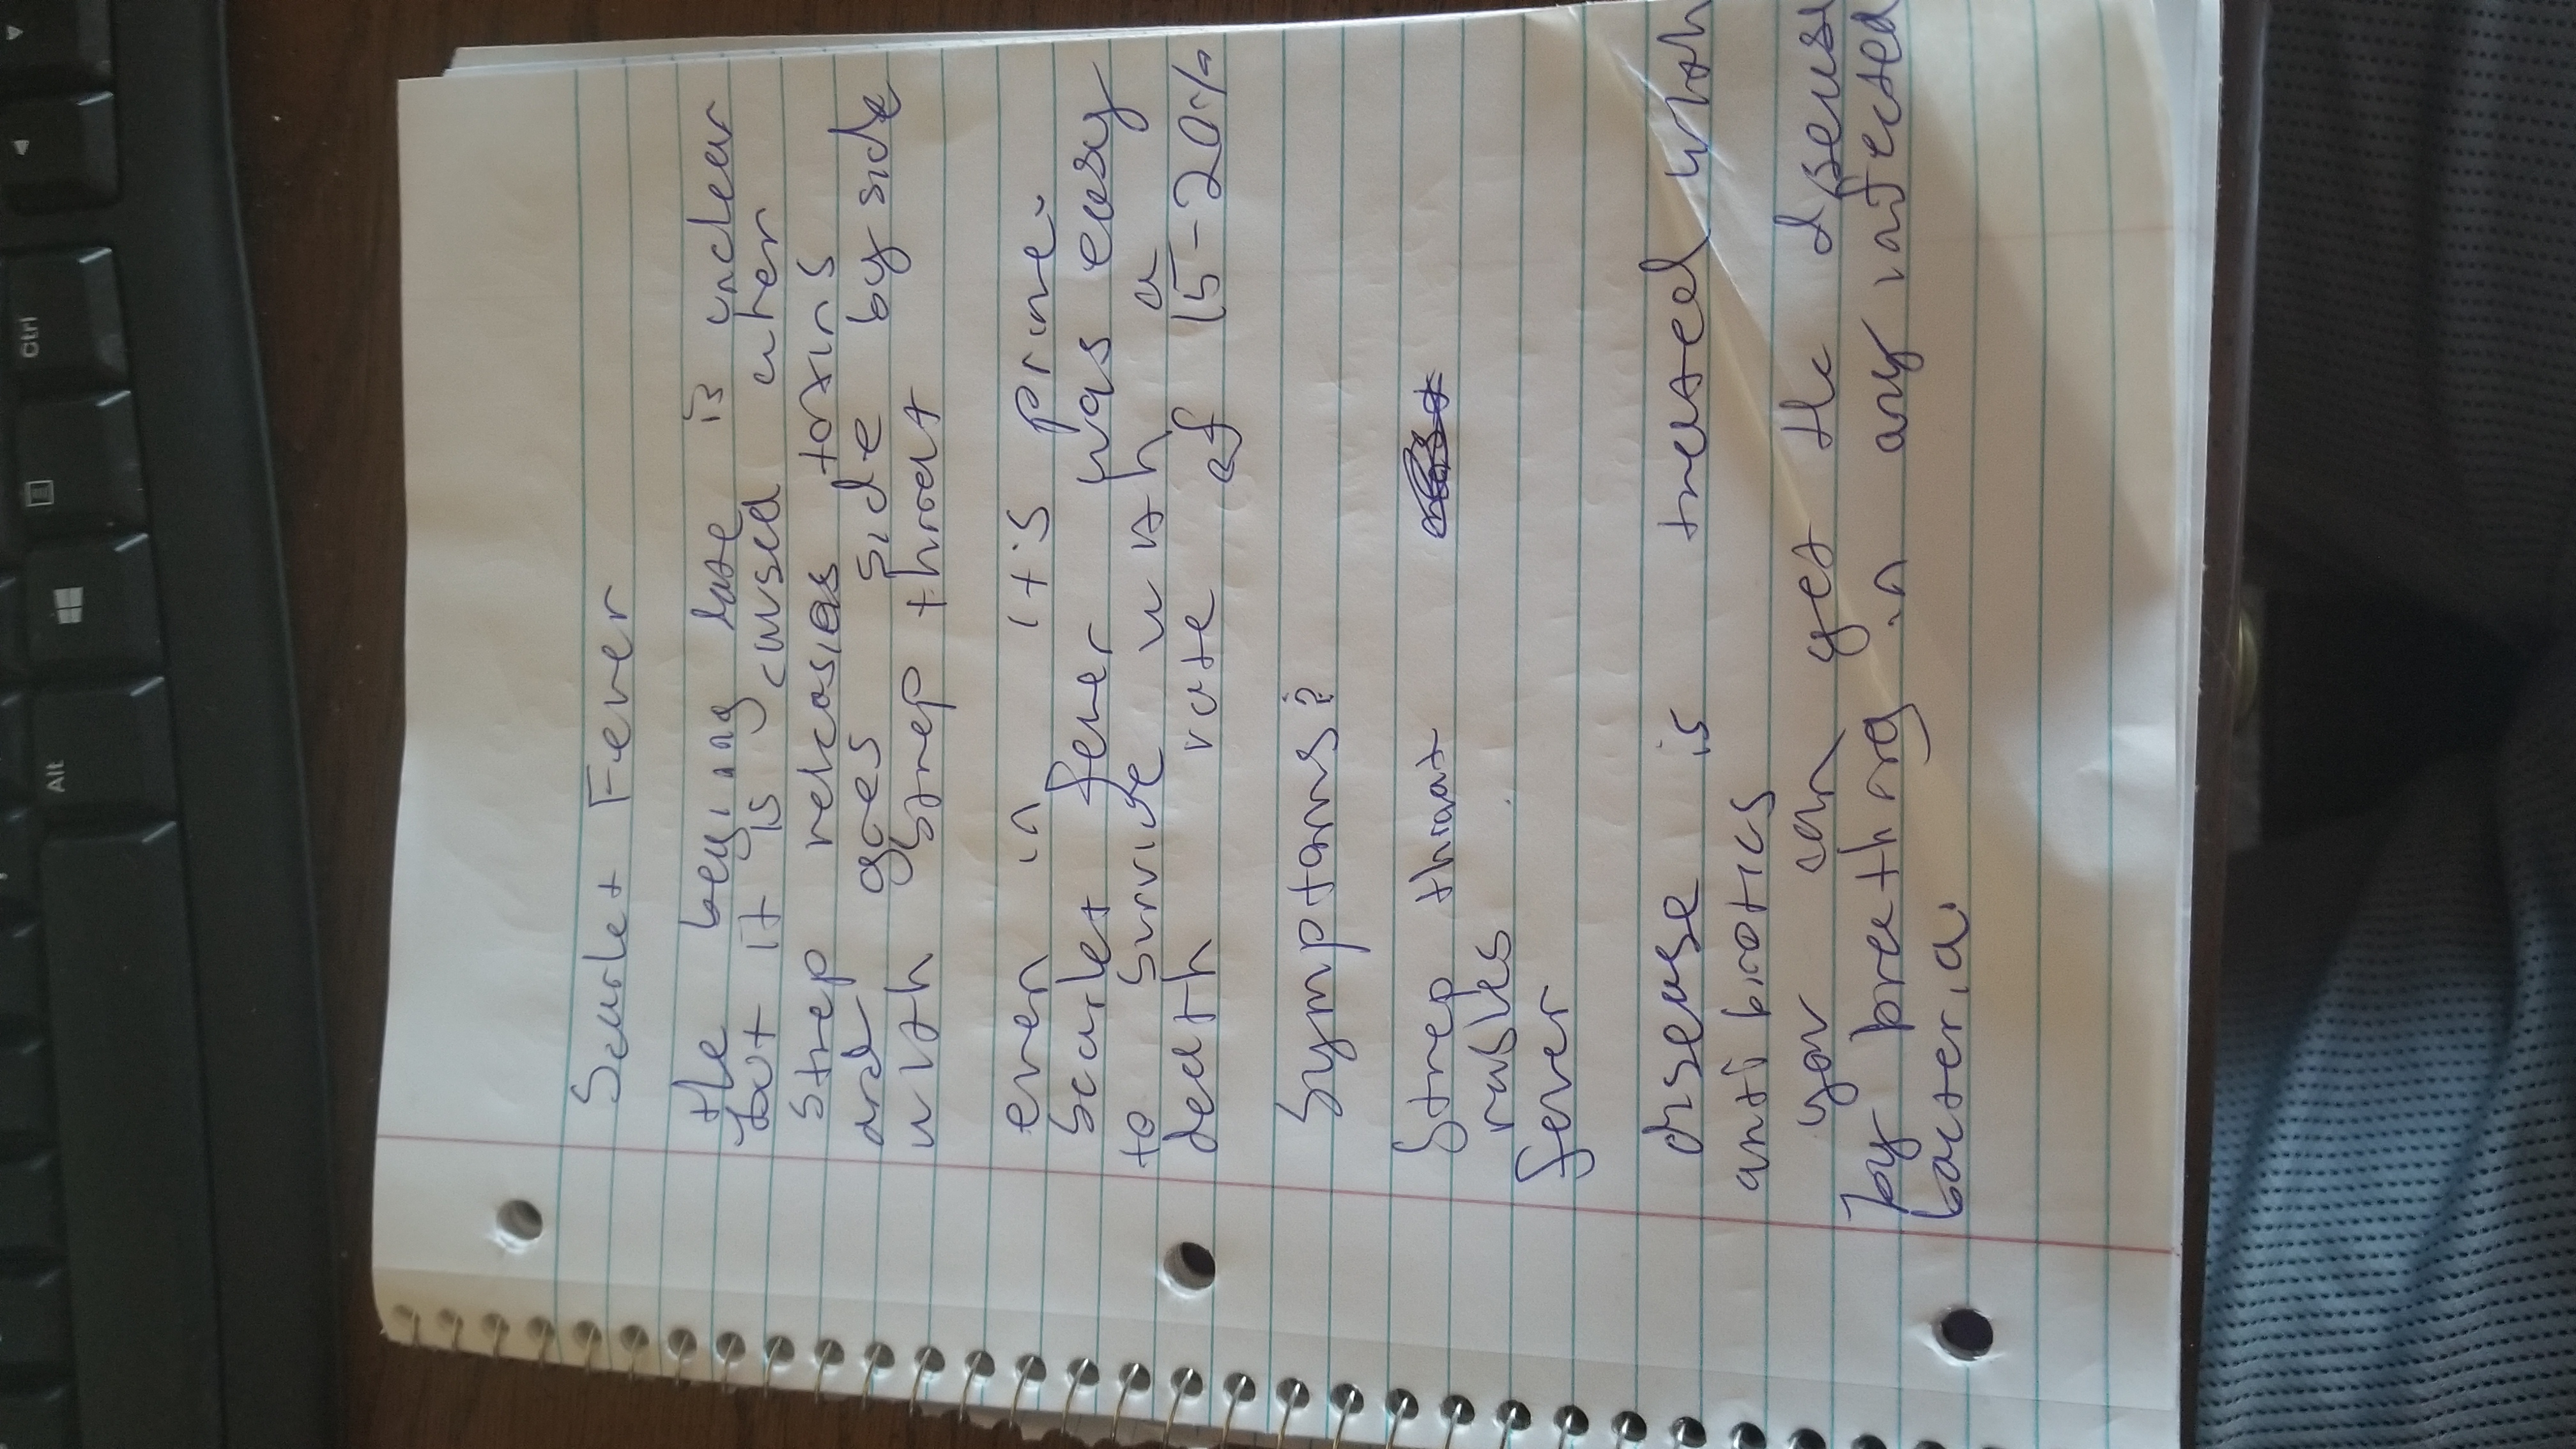 Scarlet Fever
the begining date is unclear
but it is caused when
strep relcasies toxins
and goes side by side
with strep throat
even in it's prime.
Scarlet fever was easy
to survive with a
death rate of 15-20%
Symptoms:
Strep throat
rashes
fever
disease is treated with
antibiotics
you can get the disease
by breathing in any infected
bacteria.
Alt
Ctrl